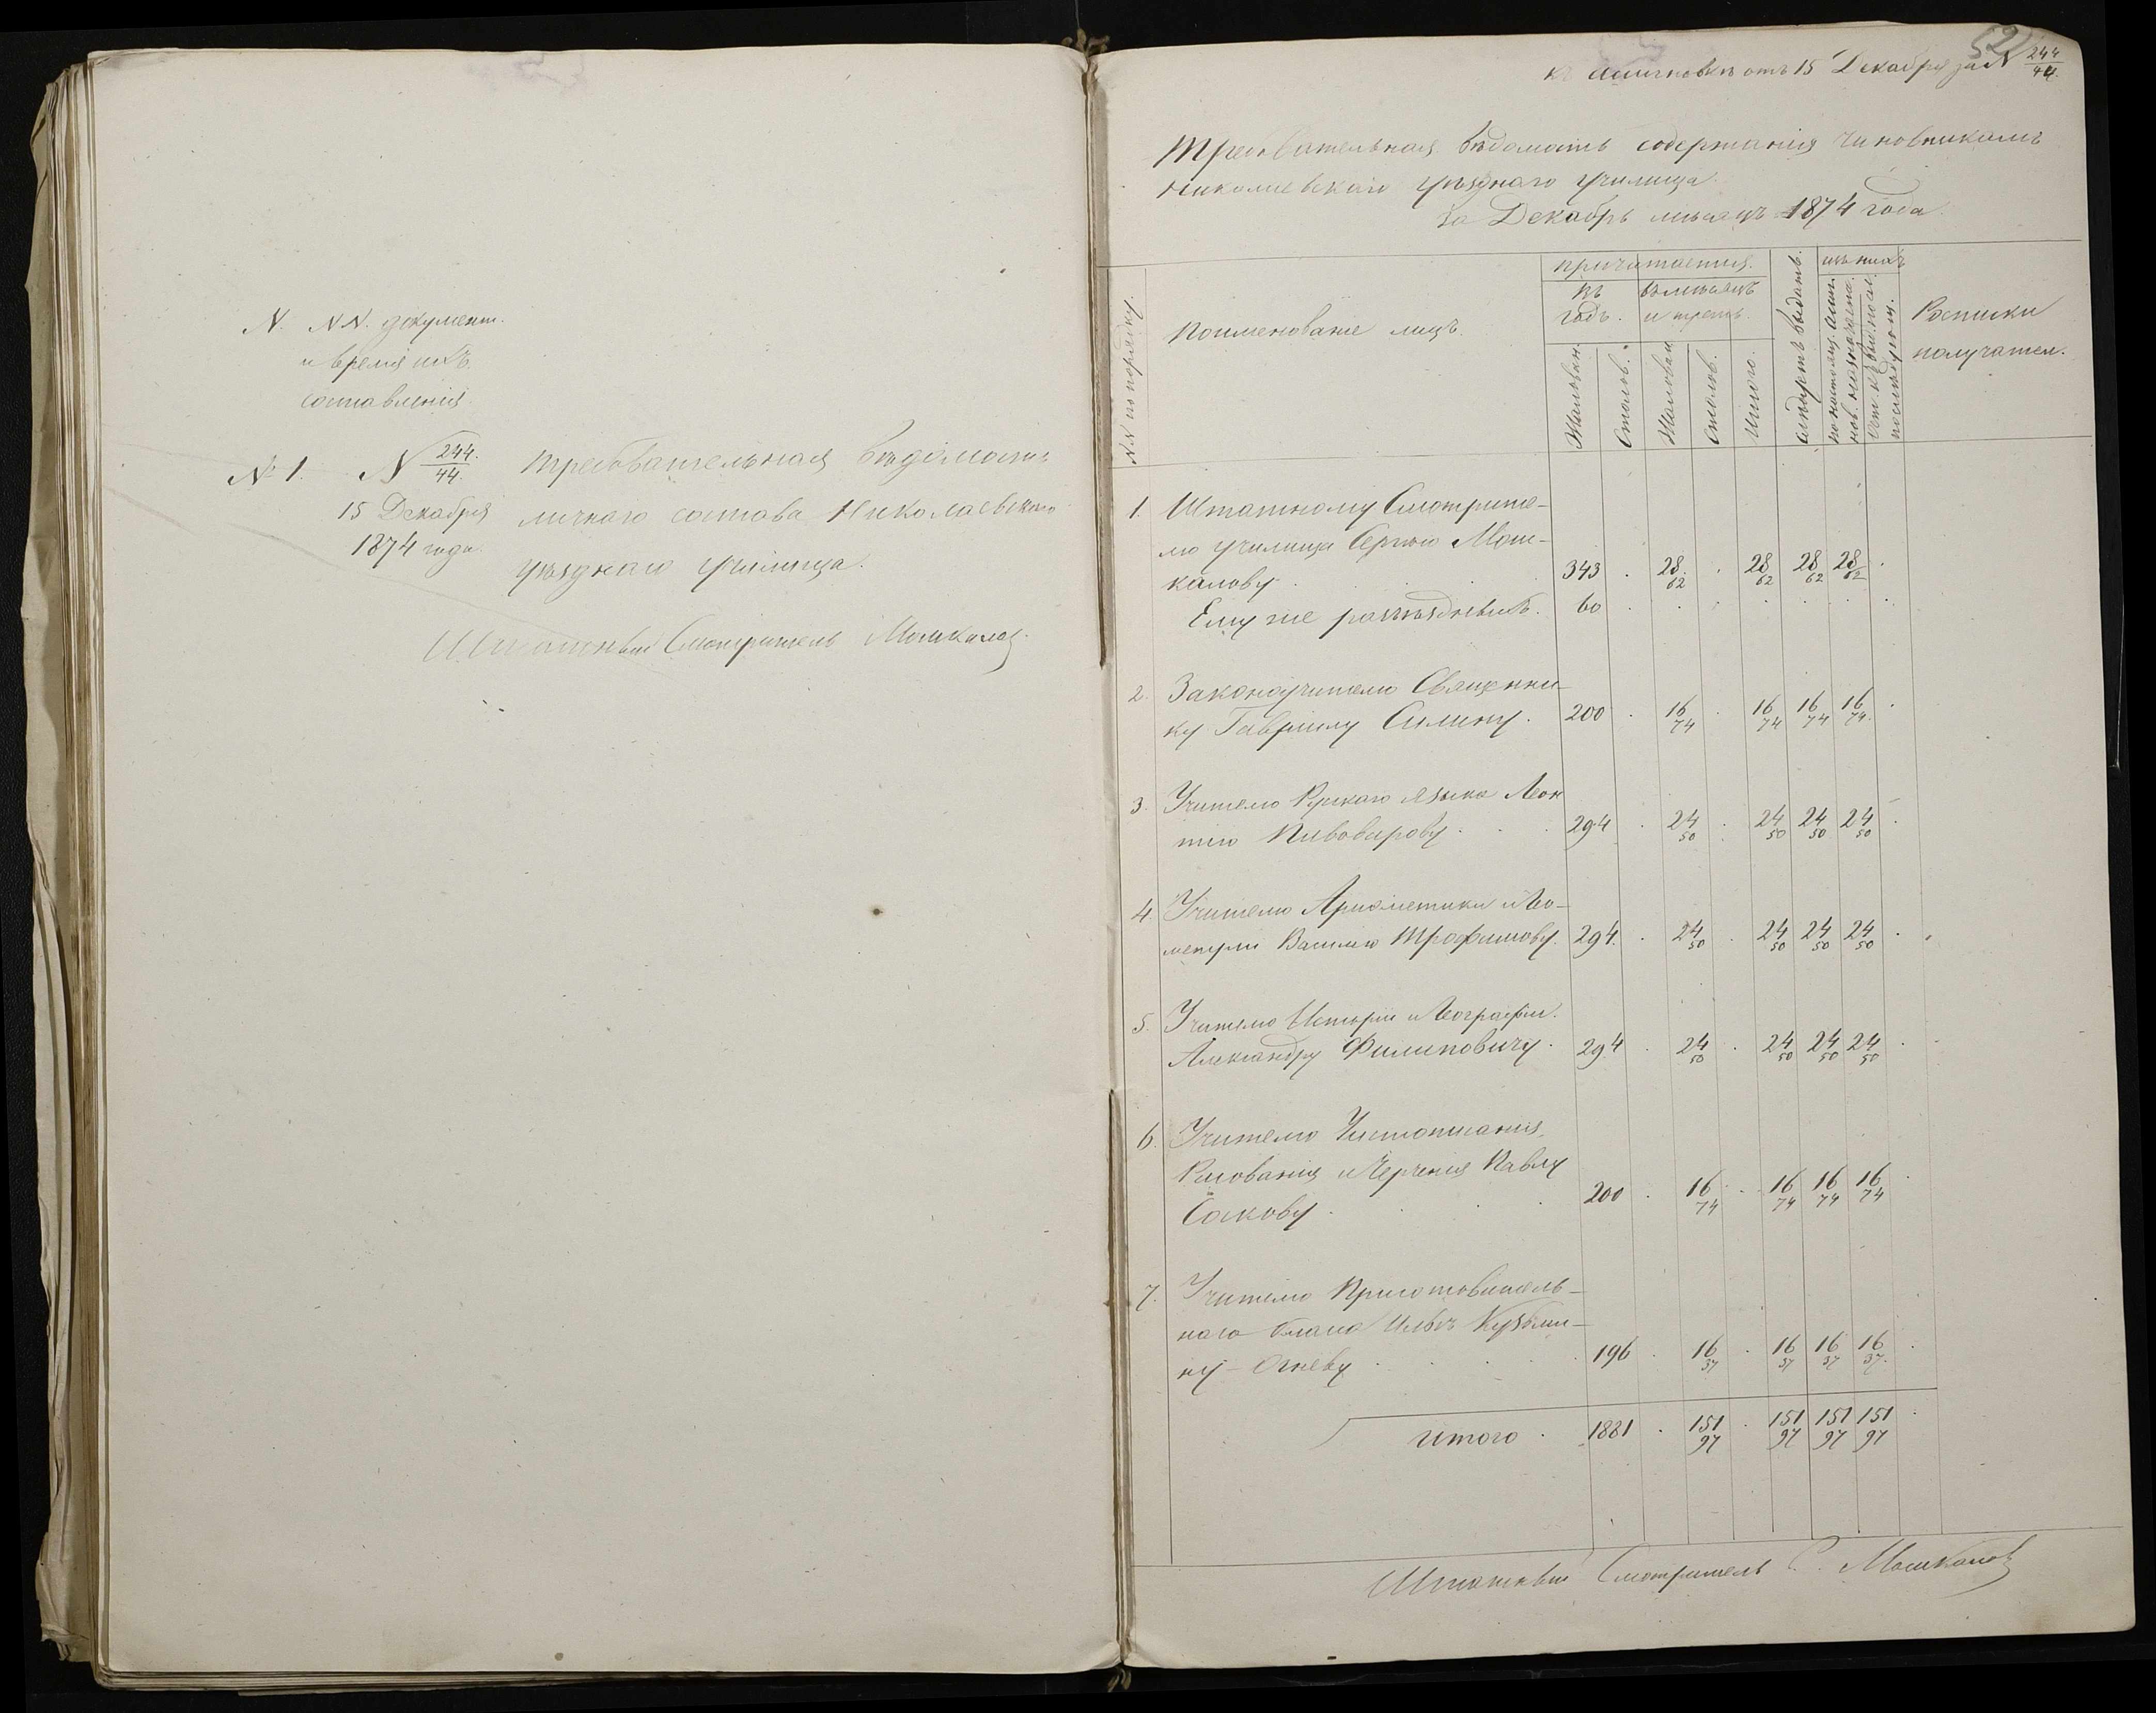 N. NN. документ.
и время ихъ
составленія.
№ 1. N 244./44. Требовательная вѣдомость
15 Декабря личнаго состава Николаевскаго
1874 года. уѣзднаго училища.
Штатный Смотритель Машкаловъ
52
къ ассигновкѣ отъ 15 Декабря за N 244/44.
Требовательная вѣдомость содержанія чиновникамъ
Николаевскаго уѣзднаго училища
за Декабрь мѣсяцъ 1874 года.
NN по порядку.
Поименованіе лицъ.
причитается.
въ годъ.
въ мѣсяцъ и треть.
Жалован.
Столов.
Жалован.
Столов.
Итого.
слѣдуетъ выдать.
изъ нихъ
Росписки
получател.
1. Штатному Смотрите-
лю училища Сергѣю Маш-
калову . 343 . 28 62 . 28 62 28 62 28 62 .
Ему же разъѣздныхъ. 60 . . . . . . .
2. Законоучителю Священни-
ку Гавріилу Силину . 200 . 16 74 . 16 74 16 74 16 74. .
3. Учителю Рускаго языка Леон
тію Пивоварову . . . 294 . 24 50 . 24 50 24 50 24 50 .
4. Учителю Ариѳметики и Гео-
метріи Василію Трофимову. 294. . 24 50 . 24 50 24 50 24 50 .
5. Учителю Исторіи и Географіи.
Александру Филиповичу . 294 . 24 50 . 24 50 24 50 24 50 .
6. Учителю Чистописанія,
Рисованія и Черченія Павлу
Соскову . . . 200 . 16 74 . 16 74 16 74 16 74 .
7. Учителю Приготовитель-
наго класса Ильѣ Кузьми-
ну-Огневу . . . . 196 . 16 37 . 16 37 16 37 16 37. .
Итого . 1881 . 151 97 . 151 97 151 97 151 97 .
Штатный Смотритель С. Машкаловъ